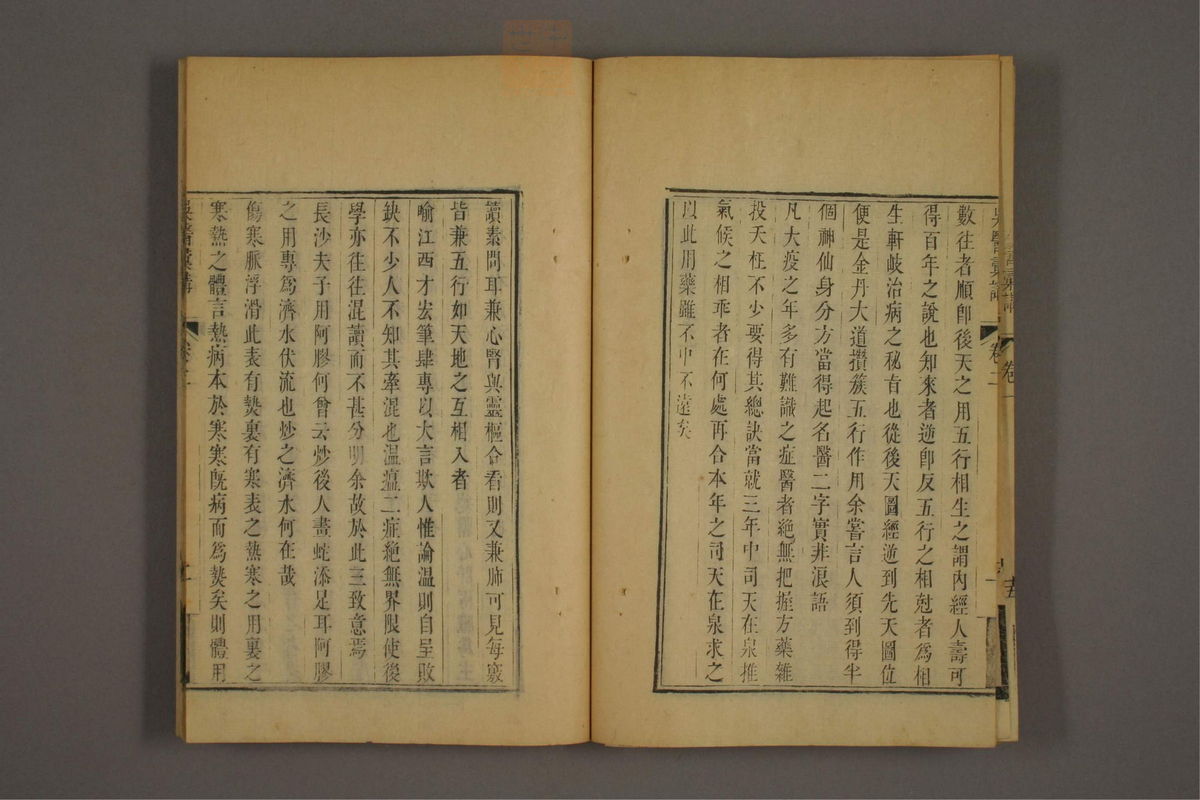 數往者順卽後天之用五行相生之謂內經人壽可
得百年之說也知來者逆卽反五行之相尅者爲相
生軒岐治病之秘旨也從後天圖經逆到先天圖位
便是金丹大道攢簇五行作用余嘗言人須到得半
個神仙身分方當得起名醫二字實非浪語
凡大疫之年多有難識之症醫者絶無把握方藥雜
投夭枉不少要得其總訣當就三年中司天在泉推
氣候之相乖者在何處再合本年之司天在泉求之
以此用藥雖不中不遠矣
讀素問耳兼心腎與靈樞合看則又兼肺可見每竅
皆兼五行如天地之互相入者
喻江西才宏筆肆專以大言欺人惟論温則自呈敗
缺不少人不知其牽混也温瘟二症絶無界限使後
學亦往往混讀而不甚分明余故於此三致意焉
長沙夫子用阿膠何曾云炒後人畫蛇添足耳阿膠
之用專爲濟水伏流也炒之濟水何在哉
傷寒脈浮滑此表有𤍠裏有寒表之熱寒之用裏之
寒熱之體言熱病本於寒寒旣病而爲𤍠矣則體用
吳醫彙講
卷二
吳醫彙講
卷二